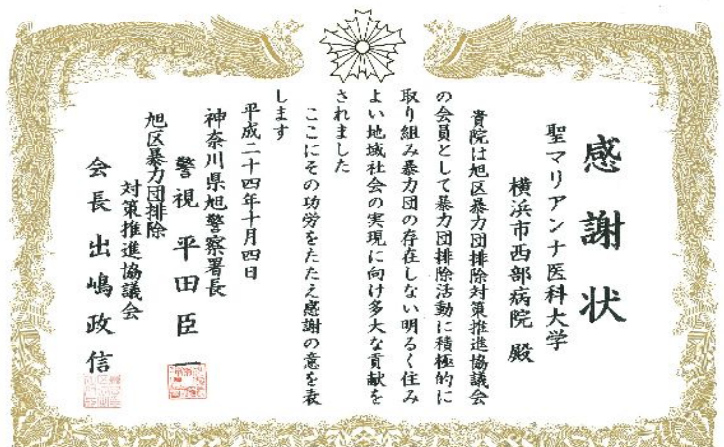 感謝状
聖マリアンナ医科大学
横浜市西部病院 殿
貴院は旭区暴力団排除対策推進協議会
の会員として暴力団排除活動に積極的に
取り組み暴力団の存在しない明るく住み
よい地域社会の実現に向け多大な貢献を
されました
ここにその功労をたたえ感謝の意を表
します
平成二十四年十月四日
神奈川県旭警察署長
警視 平田臣
旭区暴力団排除
対策推進協議会
会長 出嶋政信